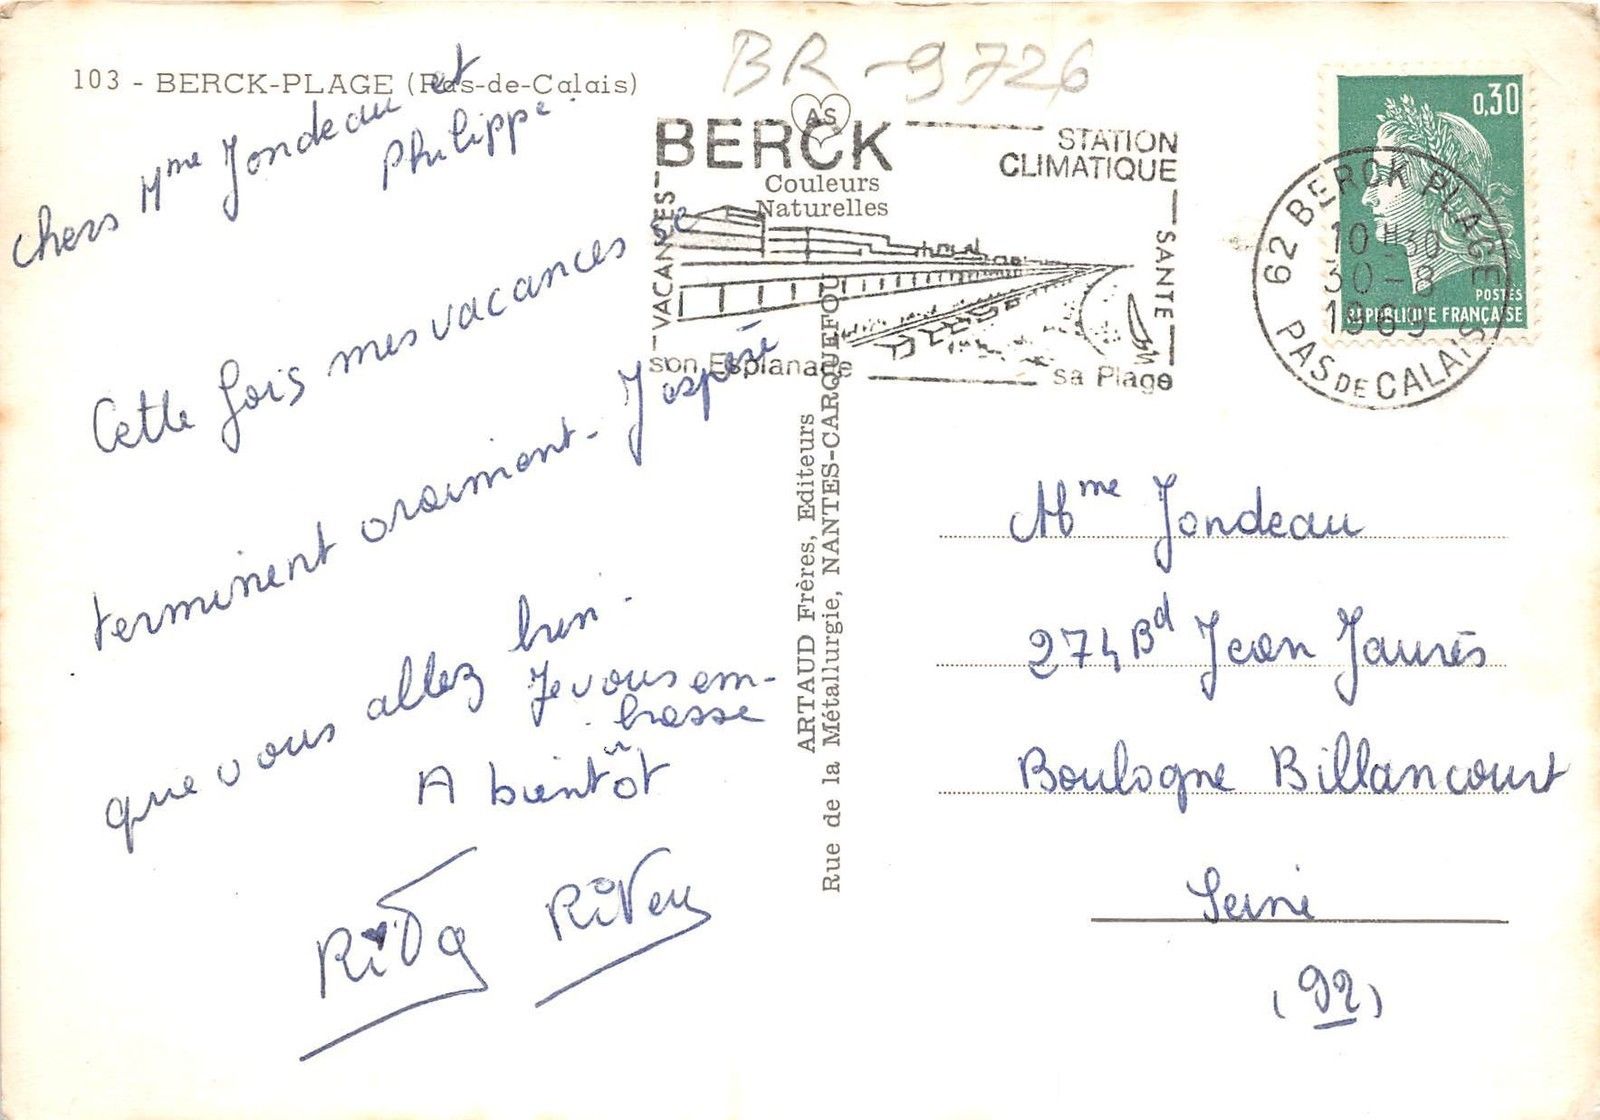 103 - BERCK-PLAGE (Pas-de-Calais)
BR-9726
chers Mme Jondeau et
Philippe.
Cette fois mes vacances se
terminent vraiment - J'espère
que vous allez bien.
Je vous em-
brasse
A bientôt
Rita Riveu
AS
BERCK
Couleurs
Naturelles
STATION
CLIMATIQUE
VACANCES
SANTE
son Esplanade
sa Plage
ARTAUD Frères, Editeurs
Rue de la Métallurgie, NANTES-CARQUEFOU
0,30
POSTES
REPUBLIQUE FRANÇAISE
62 BERCK PLAGE
10H30
30-8
1969
PAS DE CALAIS
Mme Jondeau
274 Bd Jean Jaurès
Boulogne Billancourt
Seine
(92)